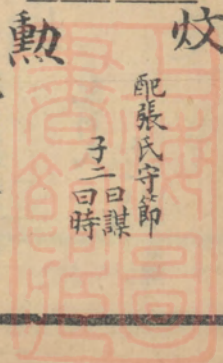 炆
配張氏守節
子二曰謀
曰時
勳